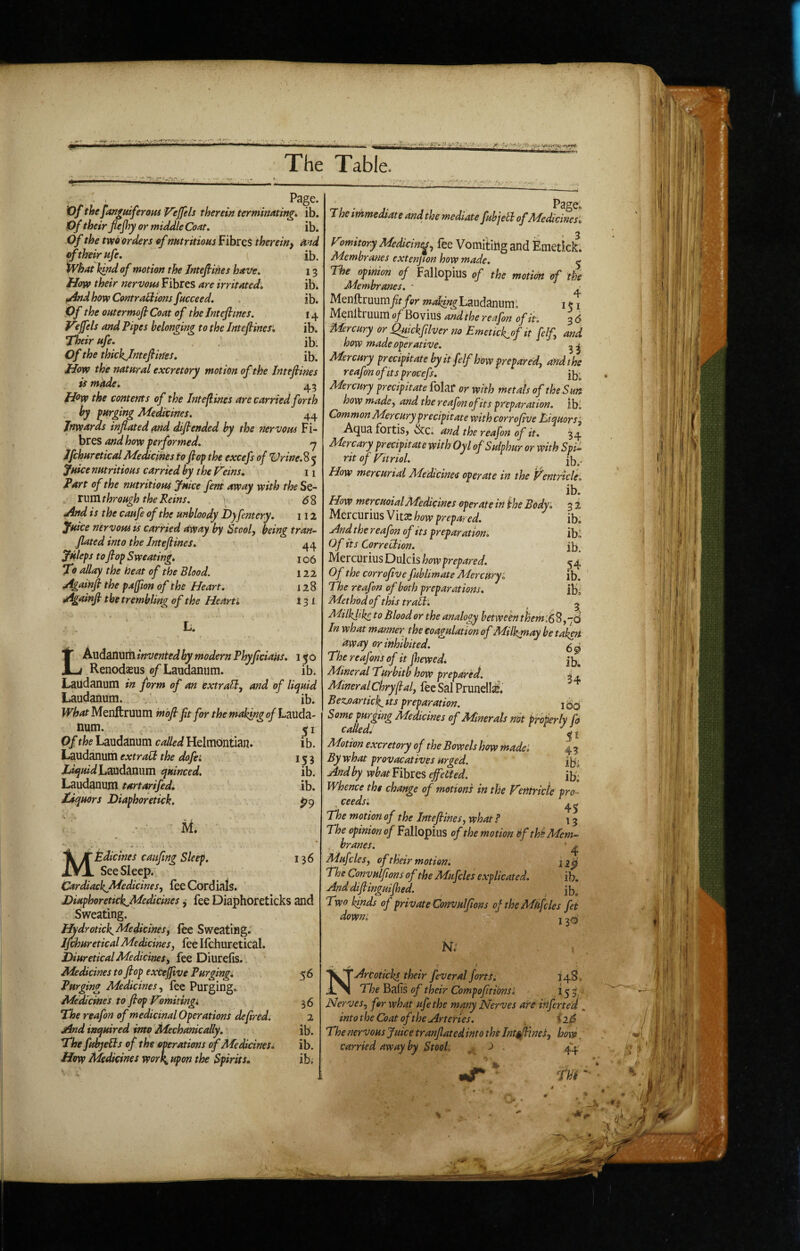 The Table.
Page.
Of the sanguiferous Vessels therein terminating. ib.
Of their fleshy or middle Coat. ib.
Of the two orders of nutritious Fibres therein, and
of their use. ib.
What kind of motion the Intestines have. 13
How their nervous Fibres are irritated. ib.
And how Contractions succeed. ib.
Of the outermost Coat of the Intestines. 14
Vessels and Pipes belonging to the Intestines. ib.
Their use. ib.
Of the thick Intestines. ib.
How the natural excretory motion of the Intestines
is made. 43
How the contents of the Intestines are carried forth
by purging Medicines. 44
Inwards inflated and distended by the nervous Fi-
bres and how performed. 7
Ischuretical Medicines to stop the excess of Urine. 85
Juice nutritious carried by the Veins. 11
Part of the nutritious Juice sent away with the Se-
rum through the Reins. 68
And is the cause of the unbloody Dysentery. 112
Juice nervous is carried away by Stool, being tran-
slated into the Intestines. 44
Juleps to stop Sweating. 106
To allay the heat of the Blood. 122
Against the passion of the Heart. 128
Against the trembling of the Heart. 131
L.
LAudanum invented by modern Physicians. 150
Renodæus of Laudanum. ib.
Laudanum in form of an extract, and of liquid
Laudanum. ib.
What Menstruum most fit for the making of Lauda-
num. 51
Of the Laudanum called Helmontian. ib.
Laudanum extract the dose. 153
Liquid Laudanum quinced. ib.
Laudanum tartarised. ib.
Liquors Diaphoretick. 99
M.
MEdicines causing Sleep. 136
See Sleep.
Cardiack Medicines, see Cordials.
Diaphoretick Medicines, see Diaphoreticks and
Sweating.
Hydrotick Medicines, see Sweating.
Ischuretical Medicines, see Ischuretical.
Diuretical Medicines, see Diuresis.
Medicines to stop excessive Purging. 56
Purging Medicines, see Purging.
Medicines to stop Vomiting. 36
The reason of medicinal Operations desired. 2
And inquired into Mechanically. ib.
The subjects of the operations of Medicines. ib.
How Medicines work upon the Spirits. ib.
Page.
The immediate and the mediate subject of Medicines.
3
Vomitory Medicines, see Vomiting and Emetick.
Membranes extension how made. 5
The opinion of Fallopius of the motion of the
Membranes. 4
Menstruum fit for making Laudanum. 151
Menstruum of Bovius and the reason of it. 36
Mercury or Quicksilver no Emetick of it self, and
how made operative. 33
Mercury precipitate by it self how prepared, and the
reason of its process. ib.
Mercury precipitate solar or with metals of the Sun
how made, and the reason of its preparation. ib.
Common Mercury precipitate with corrosive Liquors,
Aqua fortis, &c. and the reason of it. 34
Mercury precipitate with Oyl of Sulphur or with Spi-
rit of Vitriol. ib.
How mercurial Medicines operate in the Ventricle.
ib.
How mercuoial Medicines operate in the Body. 32
Mercurius Vitæ how prepared. ib.
And the reason of its preparation. ib.
Of its Correction. ib.
Mercurius Dulcis how prepared. 54
Of the corrosive sublimate Mercury. ib.
The reason of both preparations. ib.
Method of this tract. 3
Milk like to Blood or the analogy between them. 68, 70
In what manner the coagulation of Milk may be taken
away or inhibited. 69
The reasons of it shewed. ib.
Mineral Turbith how prepared. 34
Mineral Chrystal, see Sal Prunellæ.
Bezoartick its preparation. 100
Some purging Medicines of Minerals not properly so
called. 51
Motion excretory of the Bowels how made. 43
By what provacatives urged. ib.
And by what Fibres effected. ib.
Whence the change of motions in the Ventricle pro-
ceeds. 45
The motion of the Intestines, what? 13
The opinion of Fallopius of the motion of the Mem-
branes. 4
Muscles, of their motion. 129
The Convulsions of the Muscles explicated. ib.
And distinguished. ib.
Two kinds of private Convulsions of the Muscles set
down. 130
N.
NArcoticks their several sorts. 148
The Basis of their Compositions. 153
Nerves, for what use the many Nerves are inserted
into the Coat of the Arteries. 126
The nervous Juice translated into the Intestines, how
carried away by Stool. 44
The